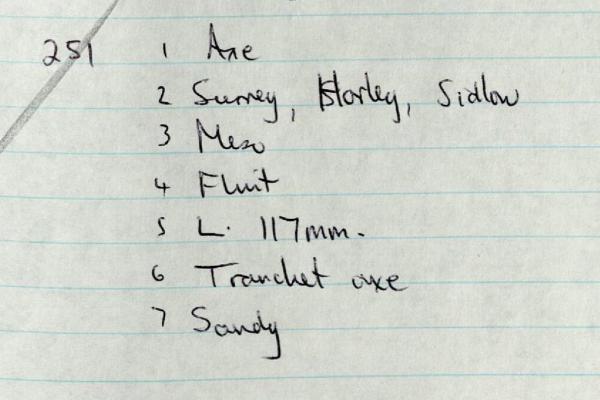 251 1 Axe
2 Surrey, Horley, Sidlow
3 Meso
4 Flint
5 L. 117mm.
6 Tranchet axe
7 Sandy